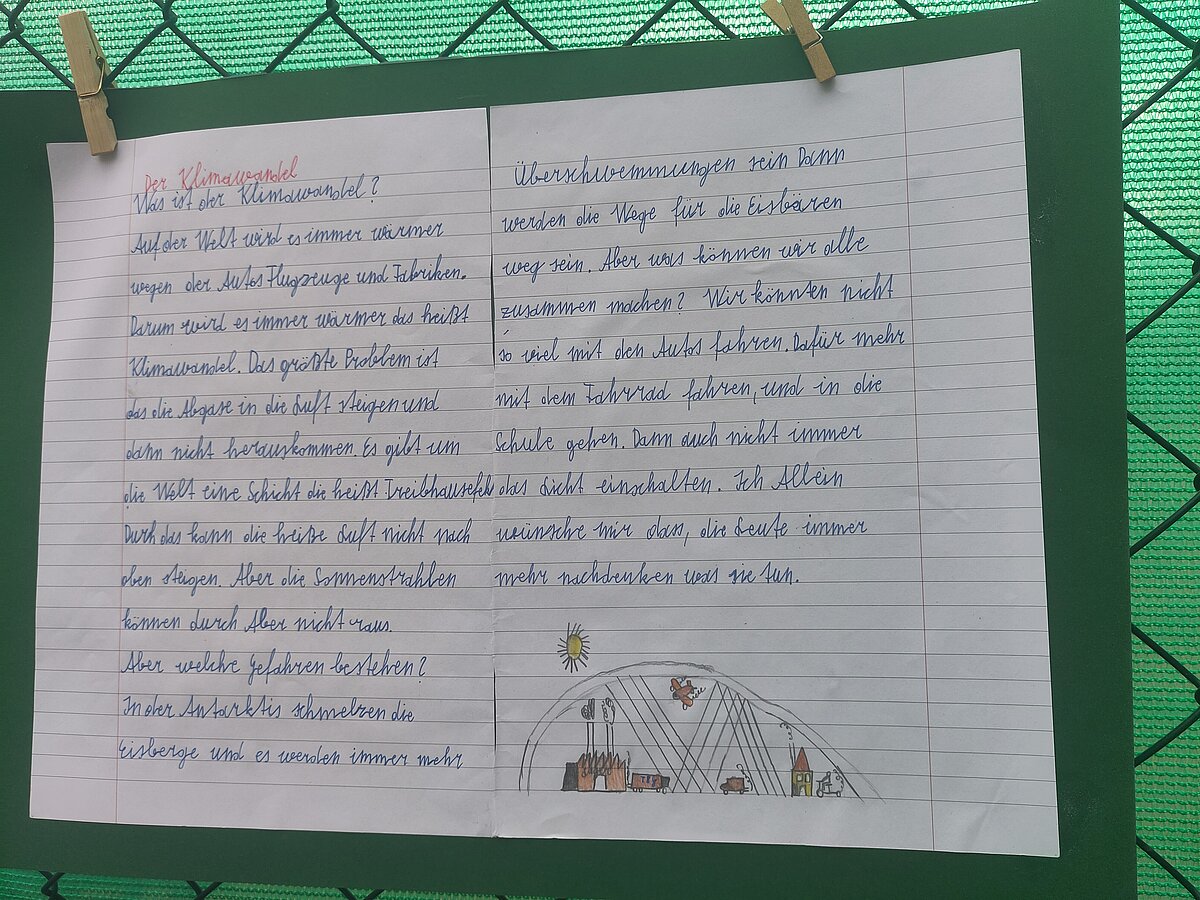 Der Klimawandel
Was ist der Klimawandel?
Auf der Welt wird es immer wärmer
wegen der Autos Flugzeuge und Fabriken.
Darum wird es immer wärmer das heißt
Klimawandel. Das größte Problem ist
das die Abgase in die Luft steigen und
dann nicht herauskommen. Es gibt um
die Welt eine Schicht die heißt Treibhausefek
Durch das kann die heiße Luft nicht nach
oben steigen. Aber die Sonnenstrahlen
können durch Aber nicht raus.
Aber welche Gefahren bestehen?
In der Antarktis schmelzen die
Eisberge und es werden immer mehr
Überschwemmungen sein Dann
werden die Wege für die Eisbären
weg sein. Aber was können wir alle
zusammen machen? Wir könnten nicht
so viel mit den Autos fahren. Dafür mehr
mit dem Fahrrad fahren, und in die
Schule gehen. Dann auch nicht immer
das Licht einschalten. Ich Allein
wünsche mir dass, die Leute immer
mehr nachdenken was sie tun.